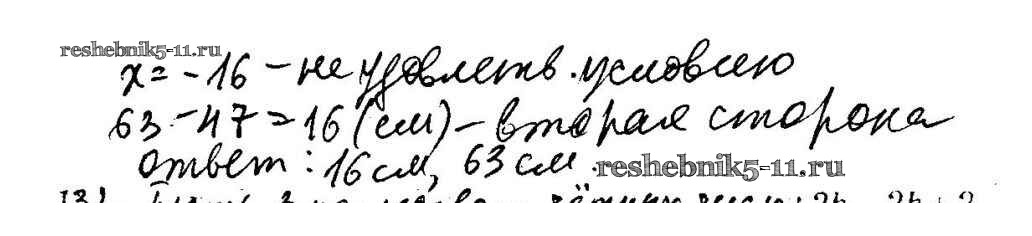 reshebnik5-11.ru
x = -16 - не удовлетв. условию
63 - 47 = 16 (см) - вторая сторона
ответ: 16 см, 63 см. reshebnik5-11.ru